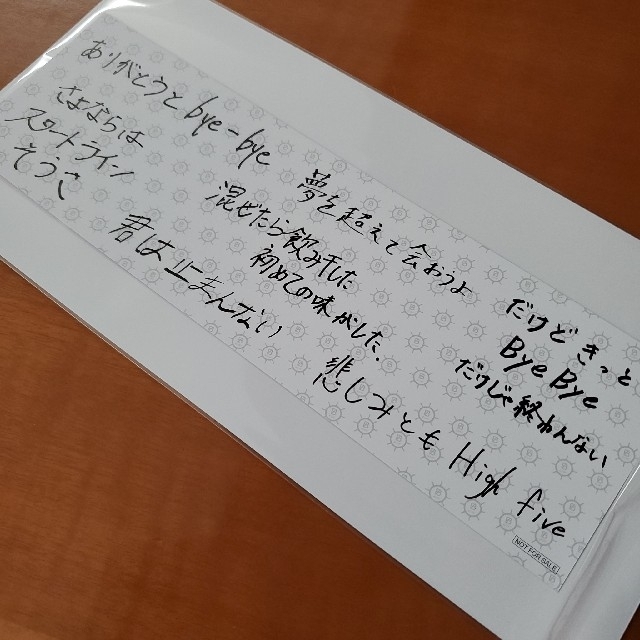 ありがとうと bye-bye
さよならは
スタートライン
そうさ
夢を超えて会おうよ
混ぜたら飲み干した
初めての味がした、
君は止まんない
だけど きっと
Bye Bye
だけじゃ終わんない
悲しみとも High five
NOT FOR SALE